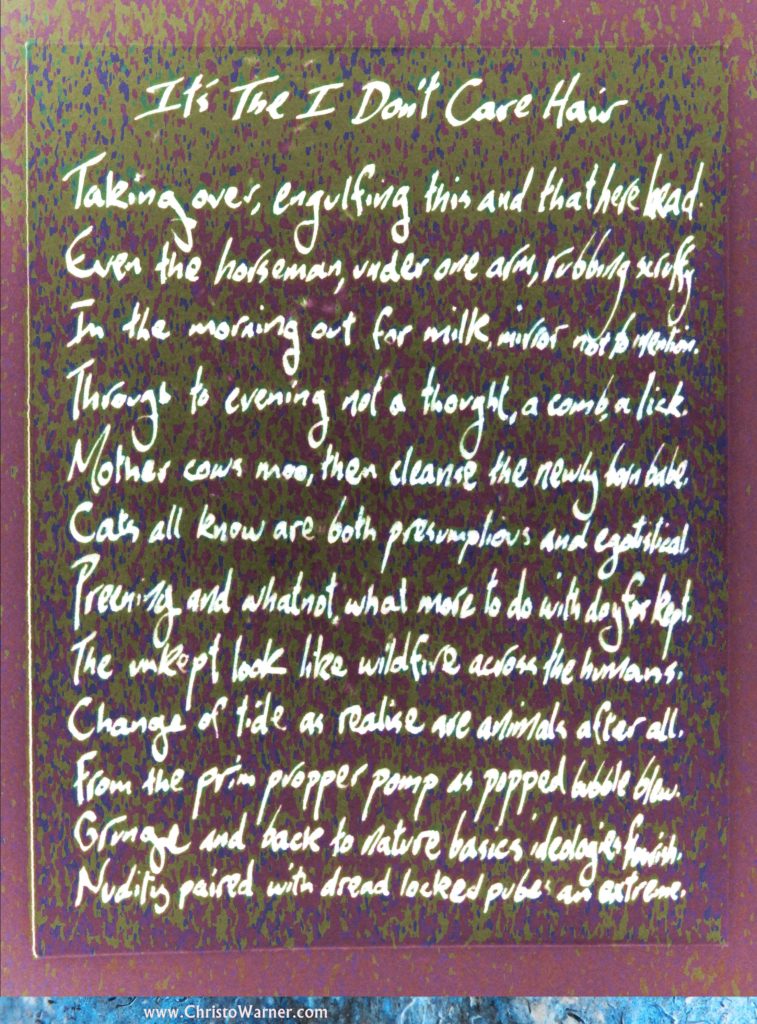 It's The I Don't Care Hair
Taking over, engulfing this and that here head.
Even the horseman, under one arm, rubbing scruffy
In the morning out for milk, mirror not to mention.
Through to evening not a thought, a comb, a lick.
Mother cows moo, then cleanse the newly born babe.
Cats all know are both presumptious and egotistical.
Preening and whatnot, what more to do with day for kept.
The unkept look like wildfire across the humans.
Change of tide as realise are animals after all.
From the prim propper pomp as popped bubble blew.
Grunge and back to nature basics ideologies flourish.
Nudity paired with dread locked pubes an extreme.
www.ChristoWarner.com